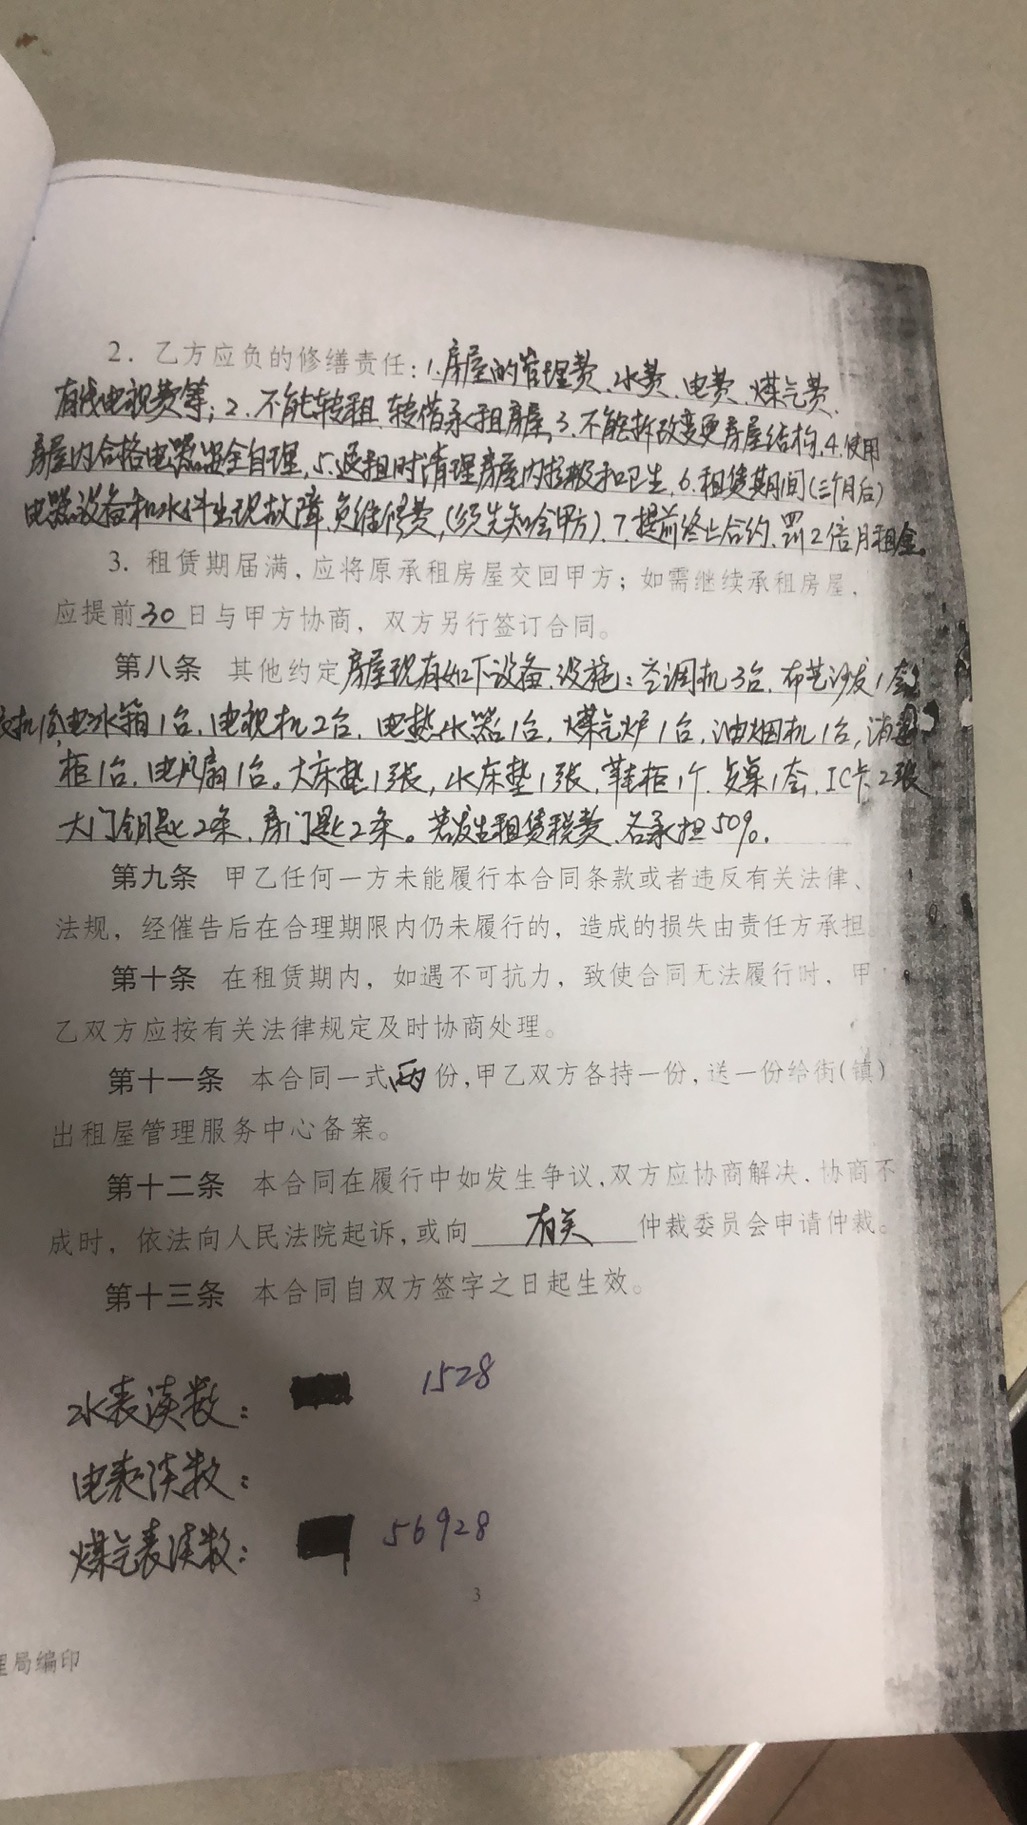 2. 乙方应负的修缮责任：1.房屋的管理费、水费、电费、煤气费、
有线电视费等；2.不能转租、转借承租房屋，3.不能拆改变更房屋结构，4.使用
房屋内合格电器安全自理，5.退租时清理房屋内垃圾和卫生，6.租赁期间(三个月后)
电器设备和水件出现故障、负维修费，(须先知会甲方)，7.提前终止合约、罚2倍月租金。
3. 租赁期届满，应将原承租房屋交回甲方；如需继续承租房屋，
应提前30日与甲方协商，双方另行签订合同。
第八条 其他约定房屋现有如下设备、设施：空调机3台，布艺沙发1套
衣机1台，电冰箱1台，电视机2台，电热水器1台，煤气炉1台，油烟机1台，消毒
柜1台，电风扇1台。大床垫1张，木床垫1张，鞋柜1个，1套，IC卡2张
大门钥匙2条，房门匙2条。若发生租赁税费，各承担50%。
第九条 甲乙任何一方未能履行本合同条款或者违反有关法律、
法规，经催告后在合理期限内仍未履行的，造成的损失由责任方承担。
第十条 在租赁期内，如遇不可抗力，致使合同无法履行时，甲
乙双方应按有关法律规定及时协商处理。
第十一条 本合同一式两份,甲乙双方各持一份,送一份给街(镇)
出租屋管理服务中心备案。
第十二条 本合同在履行中如发生争议,双方应协商解决,协商不
成时，依法向人民法院起诉,或向 有关 仲裁委员会申请仲裁。
第十三条 本合同自双方签字之日起生效。
水表读数： 1528
电表读数：
煤气表读数： 56928
3
理局编印